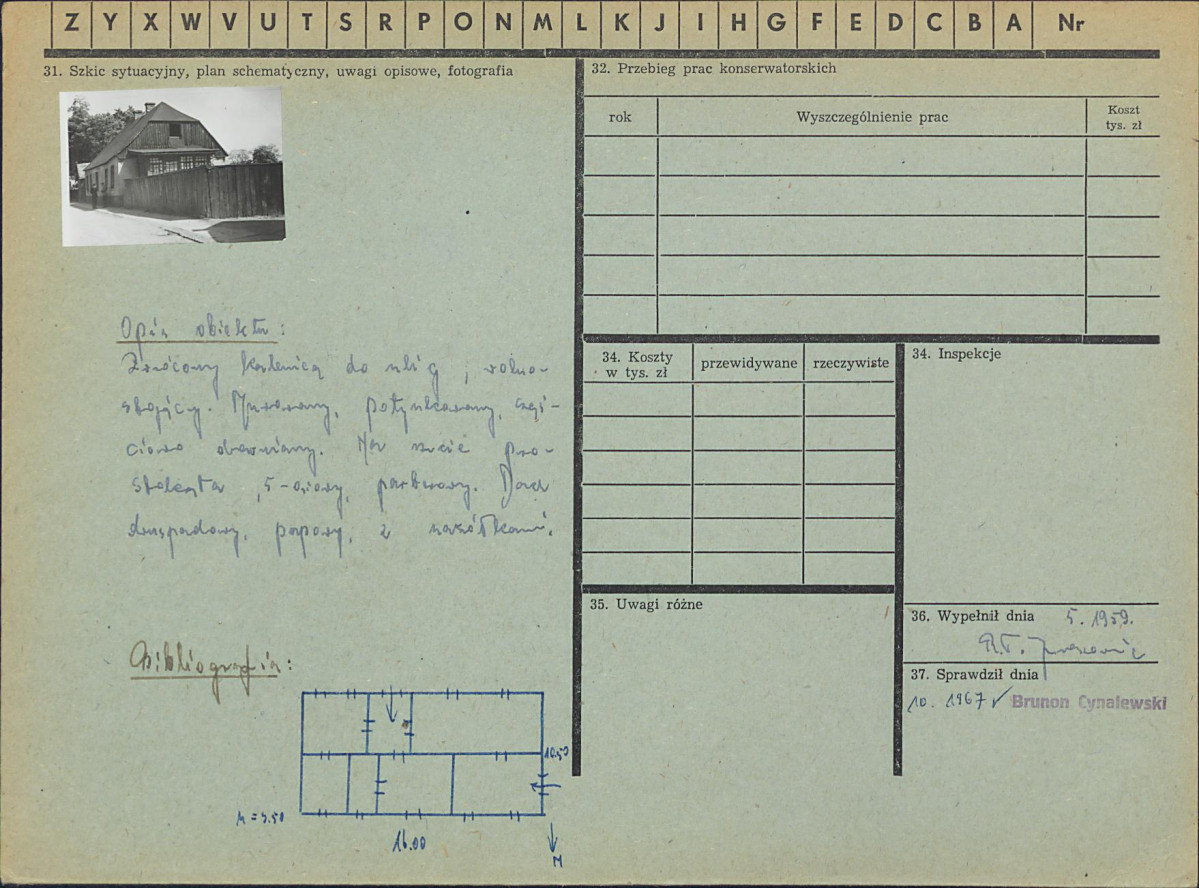 Z Y X W V U T S R P O N M L K J I H G F E D C B A Nr
31. Szkic sytuacyjny, plan schematyczny, uwagi opisowe, fotografia
Opis obiektu:
Zwrócony kalenicą do ulicy, wolno-
stojący. Murowany, potynkowany, częś-
ciowo drewniany. Na rzucie pro-
stokąta, 5-osiowy, parterowy. Dach
dwuspadowy, papowy, z naczółkami.
Bibliografia:
10.50
H = 3.50
16.00
N
32. Przebieg prac konserwatorskich
rok Wyszczególnienie prac Koszt tys. zł
34. Koszty w tys. zł przewidywane rzeczywiste
34. Inspekcje
35. Uwagi różne
36. Wypełnił dnia 5. 1959.
37. Sprawdził dnia
10. 1967 Brunon Cynalewski